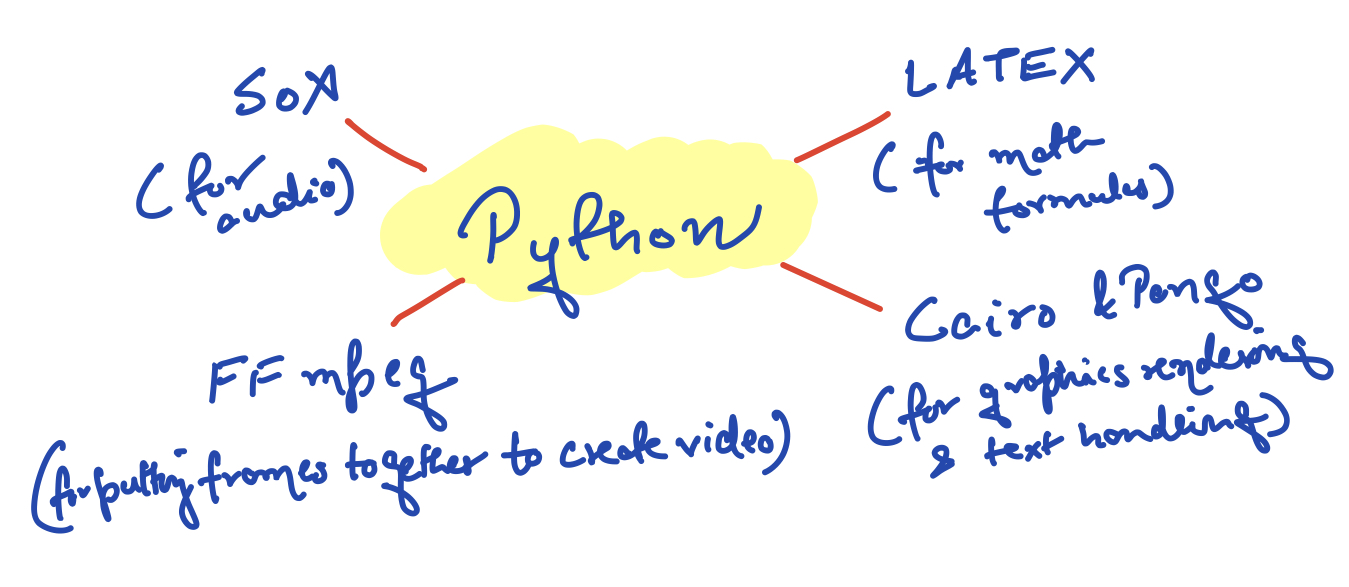 SoX
(for
audio)
LATEX
(for math
formulas)
Python
FFmpeg
(for putting frames together to create video)
Cairo & Pango
(for graphics rendering
& text handling)